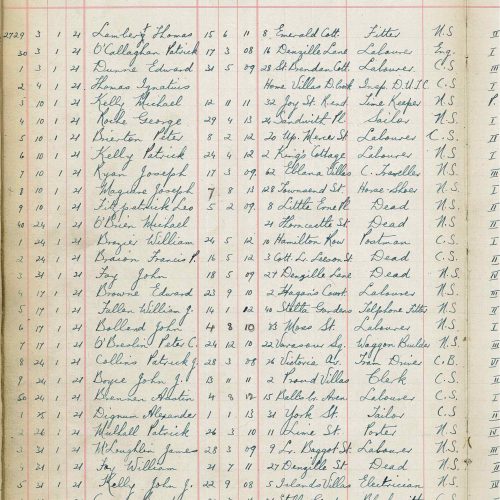 2729 3 1 21 Lambert Thomas 15 6 11 8 Emerald Cott. Fitter N.S
30 3 1 21 O'Callaghan Patrick 17 3 08 16 Denzille Lane Labourer Eng.
1 3 1 21 Dunne Edward 31 5 09 28 St Brendan Cott. Labourer C.S.
2 4 1 21 Thomas Ignatius Home Villas D.Brook Insp. D.U.T.C. C.S
3 10 1 21 Kelly Michael 12 11 11 32 Joy St. Time Keeper N.S
4 10 1 21 Roche George 29 4 13 24 Sandwith Pl. Sailor N.S
5 10 1 21 Brierton Peter 8 2 12 20 Up. Mercer St. Labourer C.S.
6 10 1 21 Kelly Patrick 24 4 12 2 King's Cottage Labourer N.S.
7 10 1 21 Ryan Joseph 17 3 09 62 Villas C. Traveller N.S
8 10 1 21 Maguire Joseph 7 8 13 128 Townsend St. Horse-Shoer N.S.
9 10 1 21 Fitzpatrick Leo 5 2 09 8 Little Erne Pl. Dead N.S.
40 24 1 21 O'Brien Michael 21 Horncastle St. Dead N.S.
1 24 1 21 Brazier William 24 5 12 10 Hamilton Row Postman C.S.
2 24 1 21 Francis P. 16 5 12 3 Cott. Lr. Leeson St. Dead C.S.
3 31 1 21 Fay John 18 5 09 27 Denzille Lane Dead N.S.
4 17 1 21 Browne Edward 23 9 10 2 Hagan's Court Labourer N.S.
5 17 1 21 Fallen William J. 14 1 02 40 Stella Gardens Telphone Fitter N.S
6 17 1 21 Bolland John 4 8 10 33 Moss St. Labourer N.S.
7 17 1 21 O'Breslin Peter C. 24 12 10 22 Vavasour Sq. Waggon Builder N.S.
8 24 1 21 Collins Patrick J. 28 3 08 26 Victoria Av. Tram Driver C.B.
9 24 1 21 Boyce John J. 13 11 11 2 Proud Villas Clerk C.S.
50 24 1 21 Brennan Austin 4 8 12 15 Balls. Aven Labourer C.S.
1 25 1 21 Dignam Alexander 1 1 13 31 York St. Tailor C.S.
2 26 1 21 Mulhall Patrick 26 3 10 11 Lime St. Porter N.S.
3 31 1 21 McLoughlin James 28 3 09 9 Lr. Baggot St. Labourer N.S.
4 31 1 21 Fay William 21 7 11 27 Denzille St. Dead N.S.
5 31 1 21 Kelly John J. 22 9 08 5 Villas Electrician N.S.